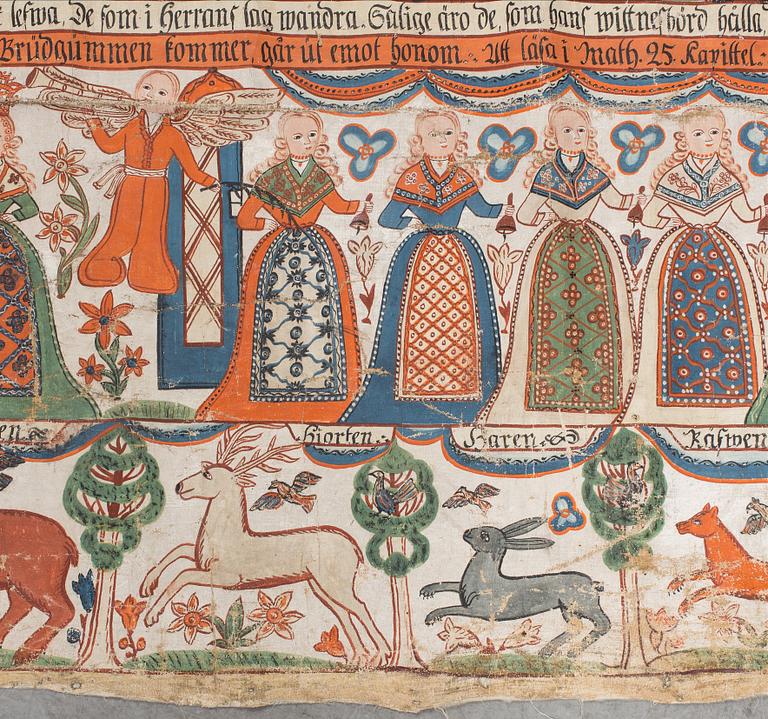 lefwa, De som i Herrans lag wandra. Salige äro de, som hans wittnesbörd hålla,
Brüdgümmen kommer, går üt emot honom. Att läsa i Math. 25. Kapittel.
en
Hjorten. Haren Räfwen